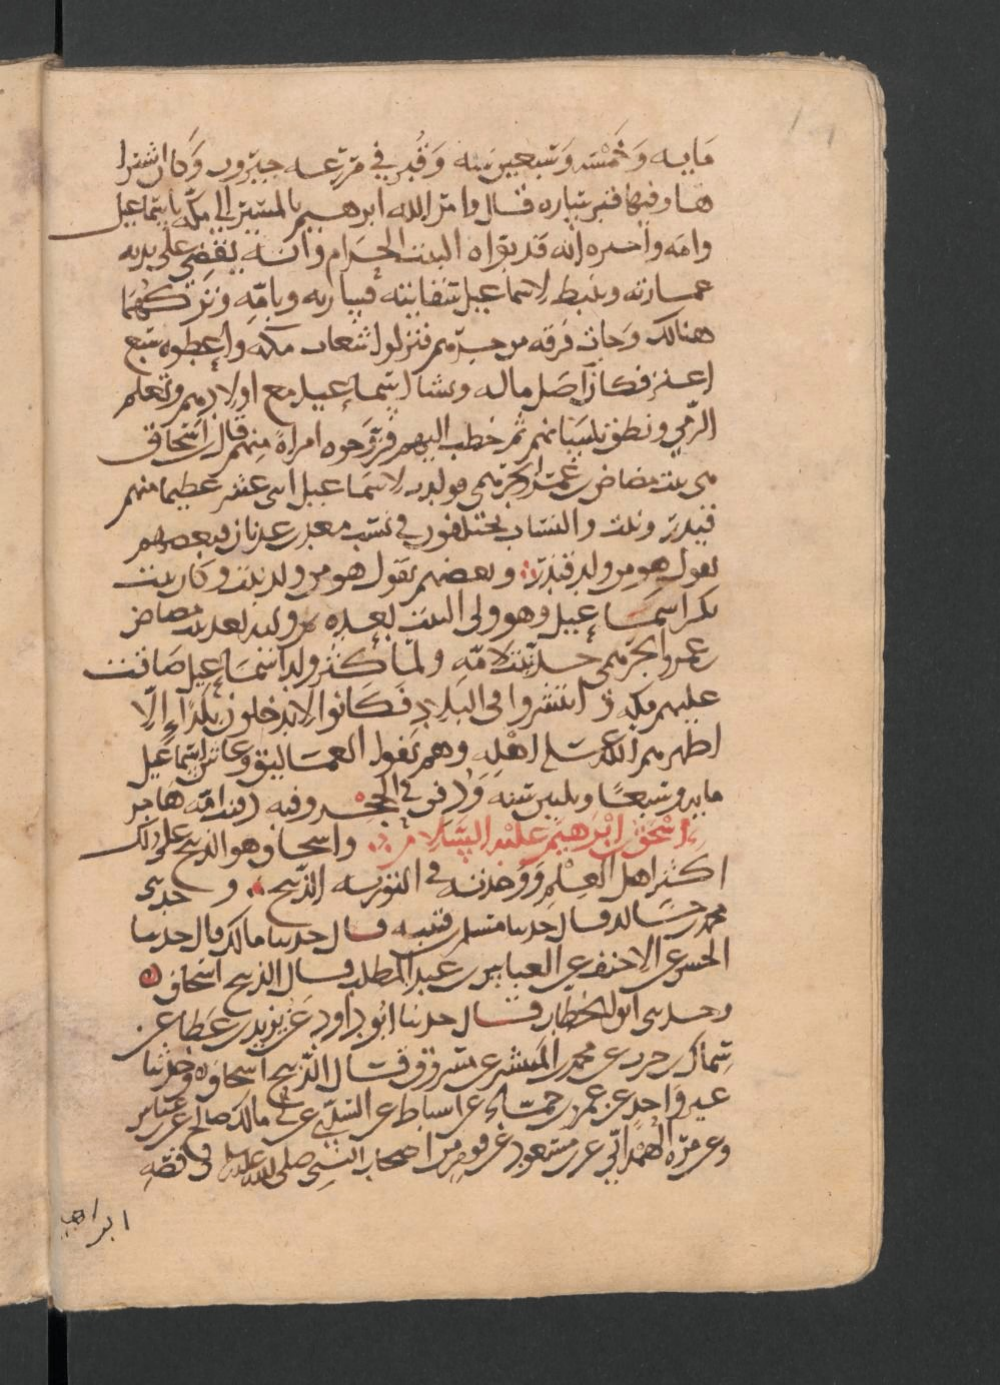 مايه وخمس وسبعين سنه وقبر في مزرعه حبرون وكان اشترا
ها وفيها قبر ساره قال وامر الله ابرهيم بالمسير الى مكه باسماعيل
وامه واخبره انه قد بواه البيت الحرام وانه يقضي على يديه
عمارته وينبط لاسماعيل سقايته فسار به وبامه وتركهما
هنالك وجات فرقه من جرهم فنزلوا شعاب مكه واعطوه سبع
اعنز فكان اصل ماله ونشا اسماعيل مع اولادهم وتعلم
الرمي ونطق بلسانهم ثم خطب اليهم فزوجوه امراة منهم قال اسحاق
هي بنت مضاض بن عمرو الجرهمي فولدت لاسماعيل اثني عشر عظيما منهم
قيدر ونبت والنساب يختلفون في نسب معد بن عدنان فبعضهم
يقول هو من ولد قيدر وبعضهم يقول هو من ولد نبت وكان نبت
بكر اسماعيل وهو ولي البيت بعده ثم ولي بعد نبت مضاض
بن عمرو الجرهمي جد نبت لامه ولما كثر ولد اسماعيل ضاقت
عليهم مكه فانتشروا في البلاد فكانوا لا يدخلون بلدا الا
اظهرهم الله على اهله وهم نفوا العماليق وعاش اسماعيل
مايه وسبعا وثلثين سنه ودفن في الحجر وفيه دفنت امه هاجر
اسحق بن ابرهيم عليه السلام واسحاق هو الذبيح على ذلك
اكثر اهل العلم ووجدته في التوريه الذبيح وحدثني
محمد بن خالد قال حدثنا مسلم بن قتيبه قال حدثنا مالك قال حدثنا
الحسن عن الاحنف عن العباس بن عبد المطلب قال الذبيح اسحاق
وحدثني ابو الخطاب قال حدثنا ابو داود عن يزيد بن عطا عن
سماك بن حرب عن محمد بن المنتشر عن مسروق قال الذبيح اسحاق وحدثنا
غير واحد عن عمرو بن حماد عن اسباط عن السدي عن ابي مالك وابي صالح عن ابن عباس
وعن مرة الهمداني عن ابن مسعود عن قوم من اصحاب النبي صلى الله عليه في قصه
ابراهيم